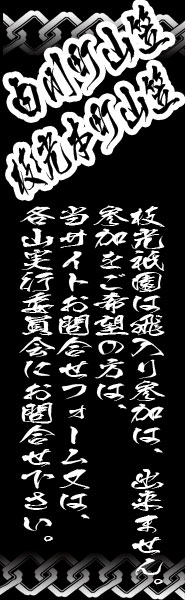 白川町山笠
枝光本町山笠
枝光祇園は飛入り参加は、出来ません。
参加をご希望の方は、
当サイトお問合せフォーム又は、
各山実行委員会にお問合せ下さい。